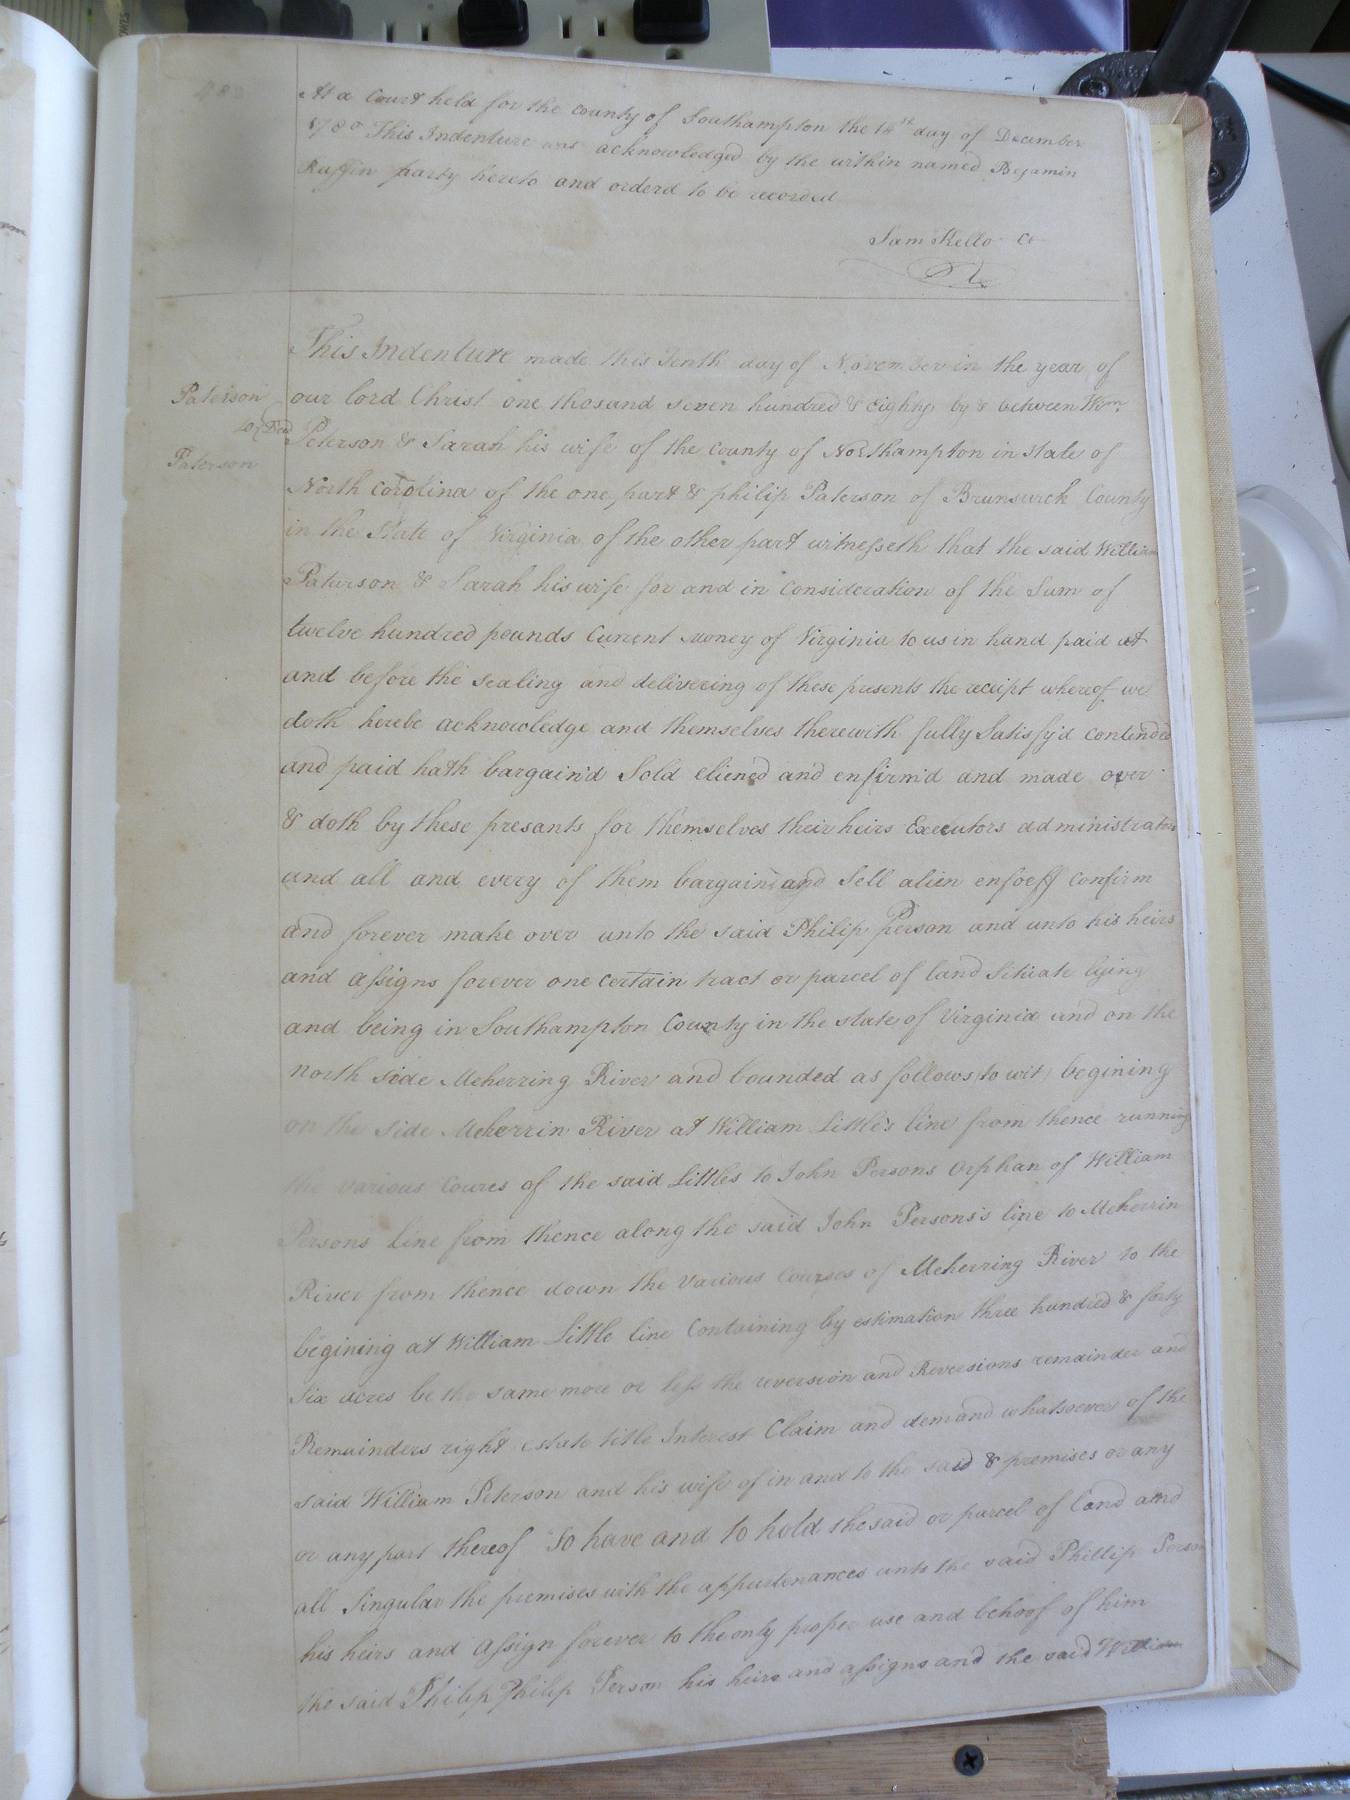 At a Court held for the county of Southampton the 14th day of December
1780 This Indenture was acknowledged by the within named Bejamin
Ruffin party hereto and orderd to be recorded
Sam Kello Cc
Paterson
to Deed
Paterson
This Indenture made this Tenth day of November in the year of
our lord Christ one thosand seven hundred & Eighty by & between Wm
Peterson & Sarah his wife of the County of Northampton in state of
North Carolina of the one part & philip Paterson of Brunswick County
in the State of Virginia of the other part witnesseth that the said William
Paterson & Sarah his wife for and in consideration of the Sum of
twelve hundred pounds Current Money of Virginia to us in hand paid at
and before the sealing and delivering of these presents the receipt whereof we
doth herebe acknowledge and themselves therewith fully Satisfy'd contended
and paid hath bargain'd Sold eliened and enfirm'd and made over
& doth by these presants for themselves their heirs Executors administrators
and all and every of them bargain and Sell alien enfoeff confirm
and forever make over unto the said Philip Person and unto his heirs
and assigns forever one certain tract or parcel of land Situate lying
and being in Southampton County in the state of Virginia and on the
north side Meherring River and bounded as follows (to wit) begining
on the side Meherrin River at William Little's line from thence running
the various Coures of the said Littles to John Persons Orphan of William
Persons line from thence along the said John Persons's line to Meherrin
River from thence down the various Courses of Meherring River to the
begining at William Little line Containing by estimation three hundred & forty
Six acres be the same more or less the reversion and Reversions remainder and
Remainders right estate title Interest Claim and demand whatsoever of the
said William Peterson and his wife of in and to the said & premises or any
or any part thereof To have and to hold the said or parcel of land and
all Singular the premises with the appurtenances unto the said Phillip Person
his heirs and assign forever to the only proper use and behoof of him
the said Philip Philip Person his heirs and assigns and the said William